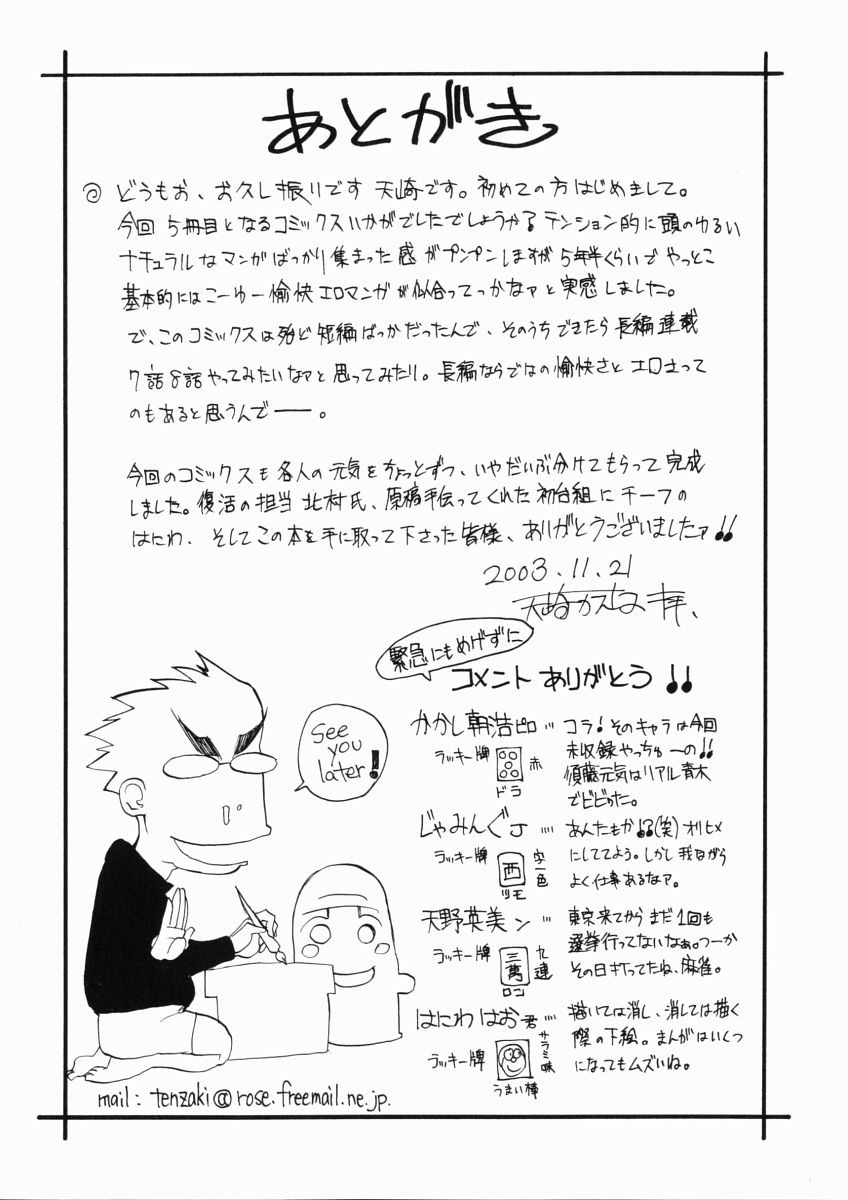 あとがき
どうもお、お久し振りです 天崎です。初めての方はじめまして。
今回 5冊目となるコミックスいかがでしたでしょうか？テンション的に頭のゆるい
ナチュラルなマンガばっかり集まった感がプンプンしますが5年半くらいでやっとこ
基本的にはこーゆー愉快エロマンガが似合ってっかなァと実感しました。
で、このコミックスは殆ど短編ばっかだったんで、そのうちできたら長編連載
7話8話やってみたいなァと思ってみたり。長編ならではの愉快さとエロさって
のもあると思うんでー。
今回のコミックスも各人の元気をちょっとずつ、いやだいぶ分けてもらって完成
しました。復活の担当 北村氏、原稿手伝ってくれた初台組にチーフの
はにわ、そしてこの本を手に取って下さった皆様、ありがとうございましたァ!!
2003.11.21
天崎かんな 拝、
緊急にもめげずに
コメント ありがとう!!
See
you
later!
かかし朝浩ピロ… コラ!そのキャラは今回
未収録やっちゅーの!!
須藤元気はリアル青木
でビビった。
ラッキー牌 赤
ドラ
じゃみんぐJ… あんたもか!?(笑)オリヒメ
にしててよう。しかし我ながら
よく仕事あるなァ。
ラッキー牌 西 字一色
ツモ
天野英美ン… 東京来てからまだ1回も
選挙行ってないなぁ。つーか
その日打ってたね、麻雀。
ラッキー牌 三萬 九連
ロン
はにわはお君… 描いては消し、消しては描く
際の下絵。まんがはいくつ
になってもムズいね。
ラッキー牌 サラミ味
うまい棒
mail: tenzaki@rose.freemail.ne.jp.